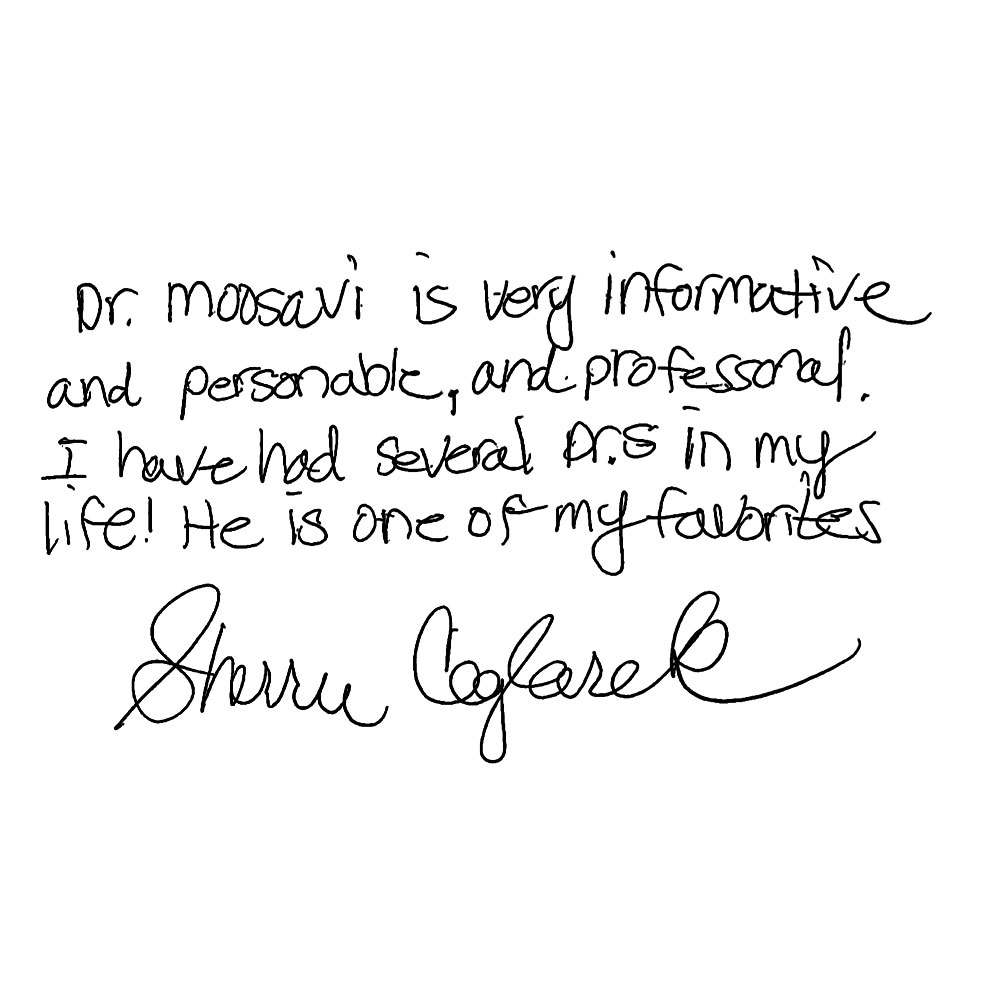 Dr. Moosavi is very informative
and personable, and professonal.
I have had several Dr.s in my
life! He is one of my favorites